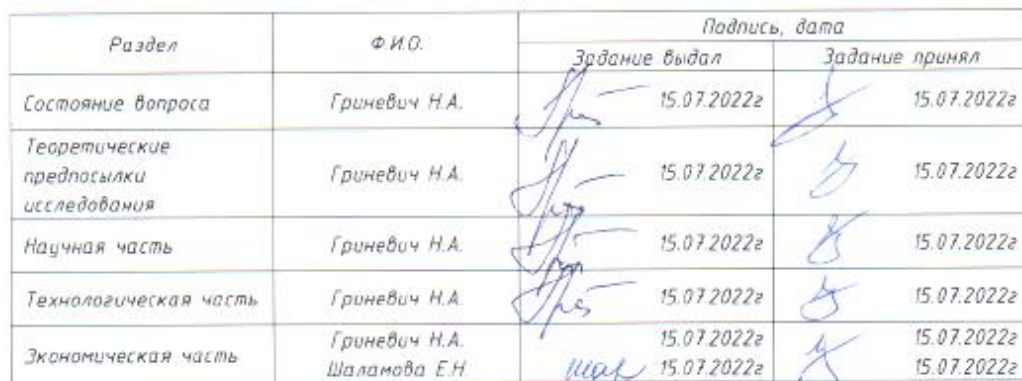 Раздел Ф.И.О. Подпись, дата
Задание выдал Задание принял
Состояние вопроса Гриневич Н.А. 15.07.2022г 15.07.2022г
Теоретические
предпосылки Гриневич Н.А. 15.07.2022г 15.07.2022г
исследования
Научная часть Гриневич Н.А. 15.07.2022г 15.07.2022г
Технологическая часть Гриневич Н.А. 15.07.2022г 15.07.2022г
Экономическая часть Гриневич Н.А. 15.07.2022г 15.07.2022г
Шаламова Е.Н 15.07.2022г 15.07.2022г